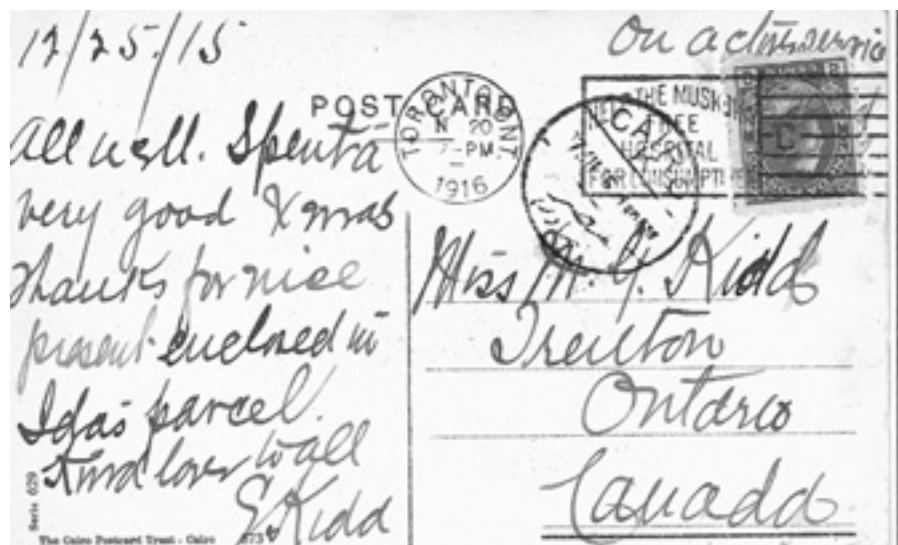 12/25/15
On active service
POST CARD
TORONTO ONT
20
PM
1916
THE MUSK
FREE
HOSPITAL
FOR CONSUMPTI
CAI
All well. Spent a
very good Xmas
Thanks for nice
present enclosed in
Ida's parcel.
Kind love to all
E. Kidd
Miss M. G. Kidd
Trenton
Ontario
Canada
Serie 629
The Cairo Postcard Trust - Cairo 573